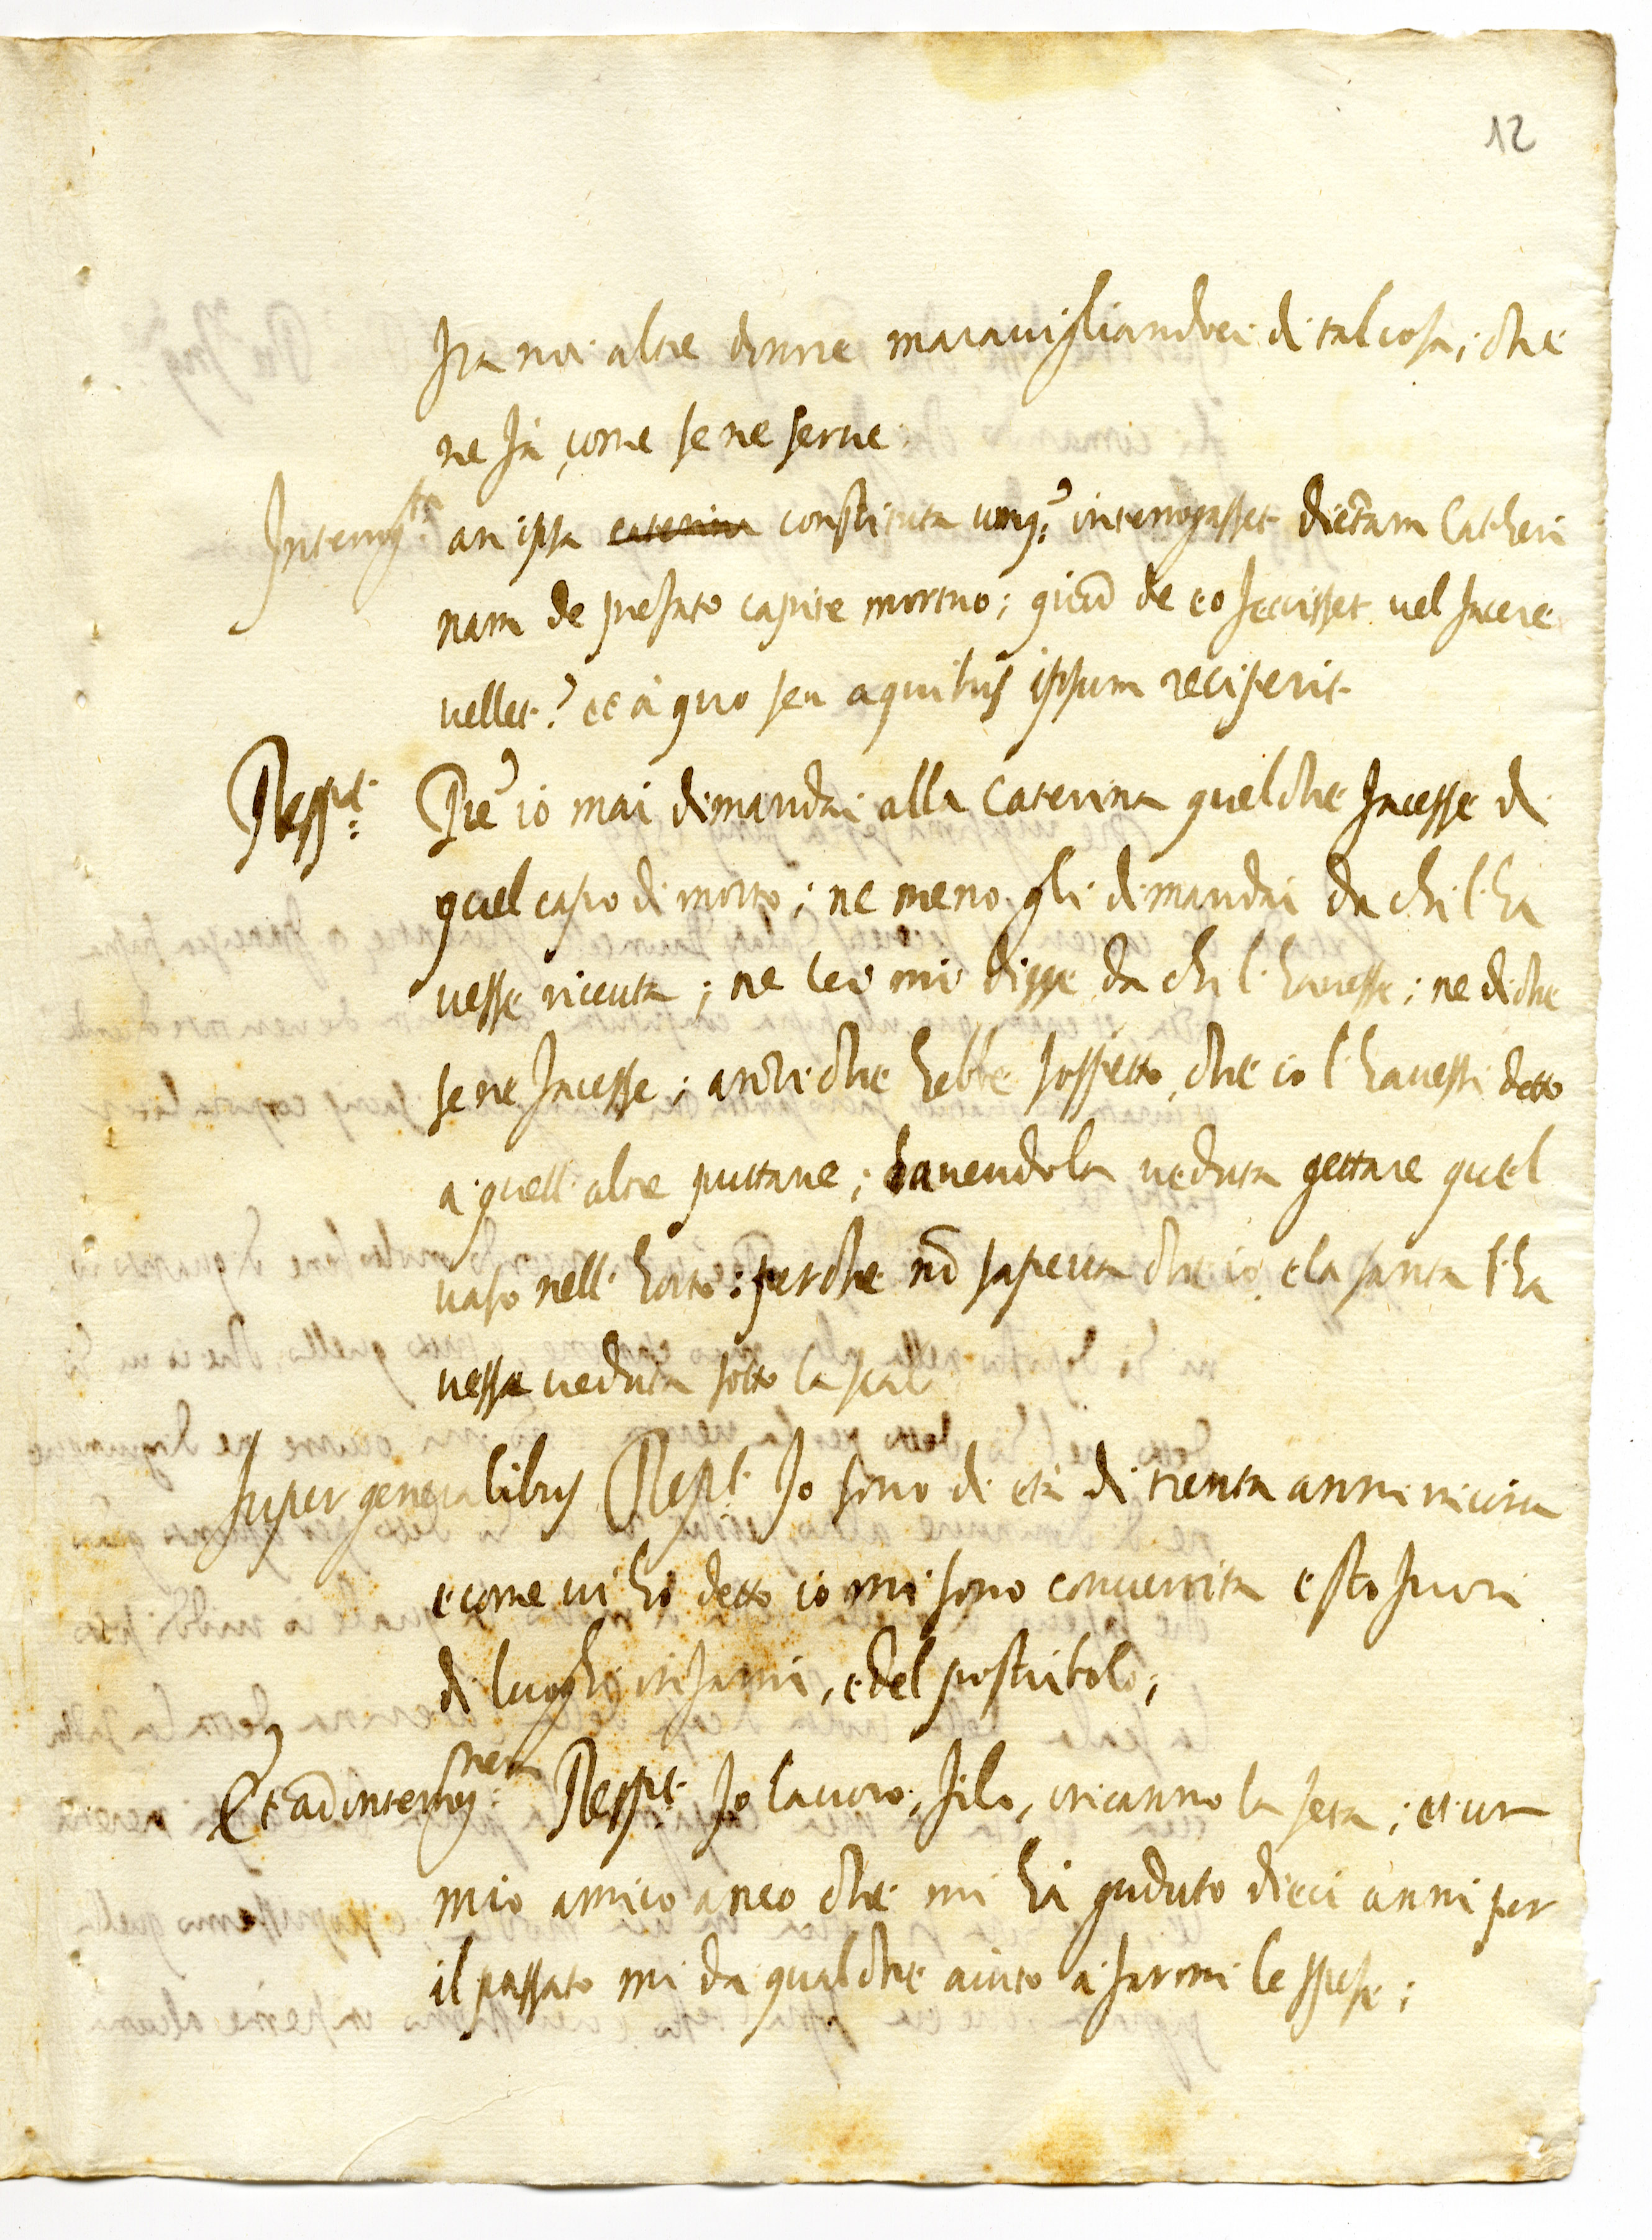 12
fra noi altre donne maravigliandoci di tal cosa; che
ne fà, come se ne serue.
Interrog.ta an ipsa caterina constituta unq.ᵃ interrogasset dictam Catheri
nam de prefato capite mortuo; quid de eo fecisset uel facere
uellet? et à quo seu a quibus ipsum receperit
Resp.t Ne io mai dimandai alla Caterina quel che facesse di
quel capo di morto; ne meno gli dimandai da chi l'ha
uesse riceuta; ne lei mi disse da chi l'hauesse; ne di che
se ne facesse; anzi che hebbe sospetto, che io l'hauessi detto
a quell'altre puttane; hauendola ueduta gettare quel
uaso nell'horto: perche nō sapeua che io, e la santa l'ha
uesse ueduta sotto la scala
super generalibus Resp.t Io sono di età di trenta anni incirca
e come ui hò detto io mi sono conuertita e sto fuori
di luoghi infami, e del postribolo;
Et ad interrog.nem Resp.t Io lauoro, filo, incanno la seta; et un
mio amico anco che mi hà goduto dieci anni per
il passato mi da qualche aiuto à farmi le spese;